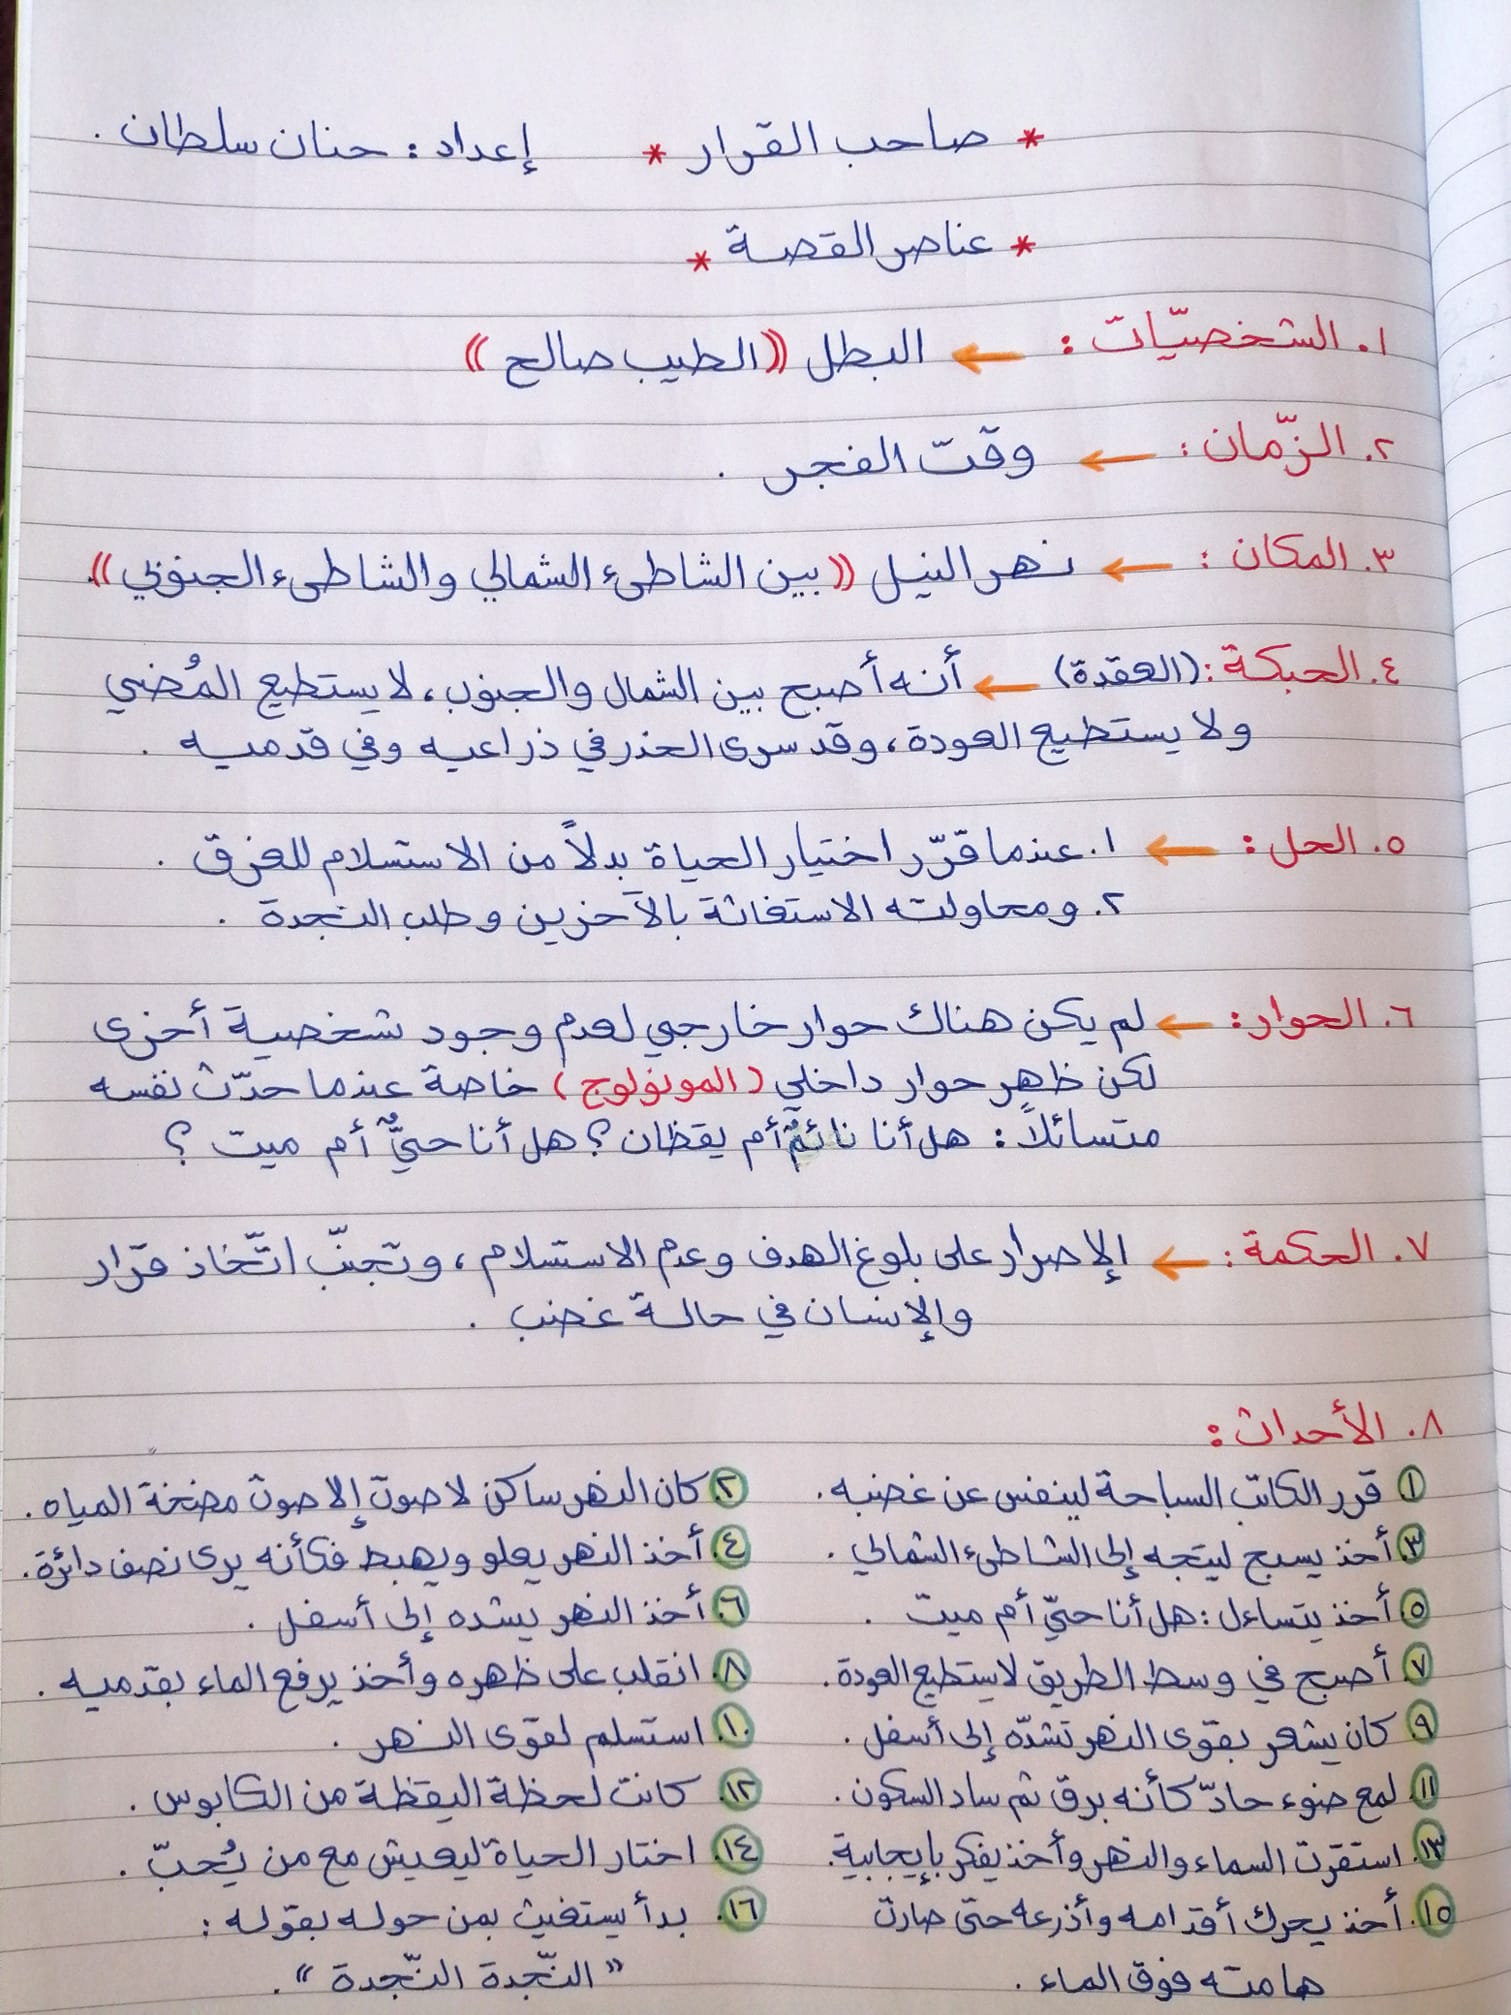 * صاحب القرار * إعداد : حنان سلطان .
* عناصر القصة *
١. الشخصيّات : ← البطل ((الطيب صالح))
٢. الزّمان : ← وقت الفجر .
٣. المكان : ← نهر النيل ((بين الشاطىء الشمالي والشاطىء الجنوبي)).
٤. الحبكة : (العقدة) ← أنه أصبح بين الشمال والجنوب ، لا يستطيع المُضي
ولا يستطيع العودة ، وقد سرى الخدر في ذراعيه وفي قدميه .
٥. الحل : ← ١. عندما قرّر اختيار الحياة بدلاً من الاستسلام للغرق .
٢. ومحاولته الاستغاثة بالآخرين وطلب النجدة .
٦. الحوار : ← لم يكن هناك حوار خارجي لعدم وجود شخصية أخرى
لكن ظهر حوار داخلي (المونولوج) خاصة عندما حدّث نفسه
متسائلاً : هل أنا نائمٌ أم يقظان ؟ هل أنا حيٌّ أم ميت ؟
٧. الحكمة : ← الإصرار على بلوغ الهدف وعدم الاستسلام ، وتجنّب اتّخاذ قرار
والإنسان في حالة غضب .
٨. الأحداث :
١ قرر الكاتب السباحة لينفس عن غضبه . ٢. كان النهر ساكن لا صوت إلا صوت مضخة المياه .
٣. أخذ يسبح ليتجه إلى الشاطىء الشمالي . ٤. أخذ النهر يعلو ويهبط فكأنه يرى نصف دائرة .
٥. أخذ يتساءل : هل أنا حيّ أم ميت . ٦. أخذ النهر يشده إلى أسفل .
٧. أصبح في وسط الطريق لا يستطيع العودة . ٨. انقلب على ظهره وأخذ يرفع الماء بقدميه .
٩ كان يشعر بقوى النهر تشدّه إلى أسفل . ١٠. استسلم لقوى النهر .
١١. لمع ضوء حادّ كأنه برق ثم ساد السكون . ١٢. كانت لحظة اليقظة من الكابوس .
١٣. استقرت السماء والنهر وأخذ يفكر بإيجابية . ١٤. اختار الحياة ليعيش مع من يُحبّ .
١٥. أخذ يحرك أقدامه وأذرعه حتى صارت ١٦. بدأ يستغيث بمن حوله بقوله :
هامته فوق الماء . " النّجدة النّجدة " .